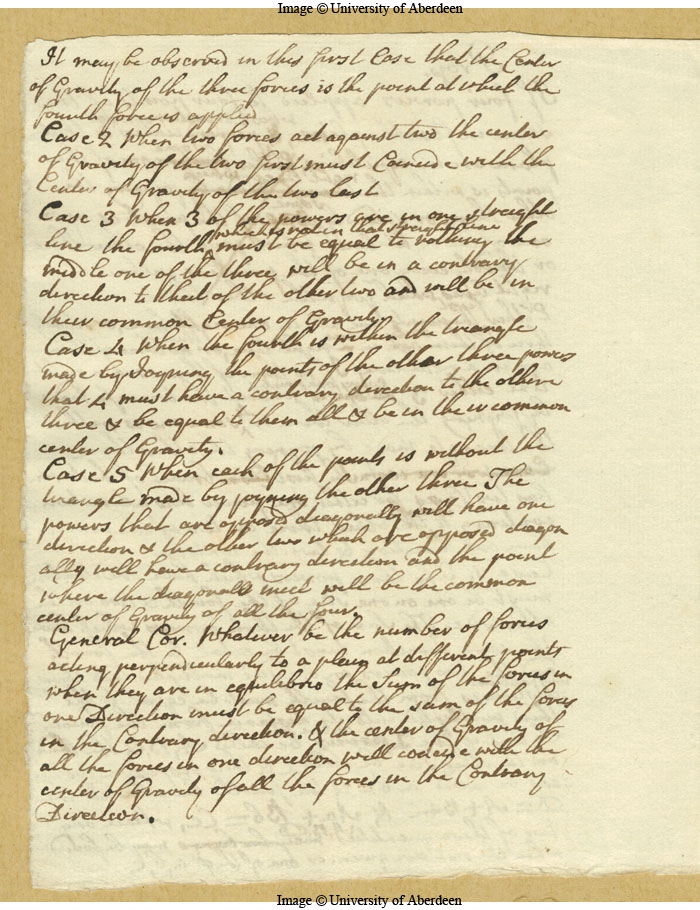 Image © University of Aberdeen
It may be observed in this first Case that the Center
of Gravity of the three forces is the point at which the
fourth force is applied
Case 2 When two forces act against two the center
of Gravity of the two first must Coincide with the
Center of Gravity of the two last
Case 3 When 3 of the powers are in one straight
which is not in that straight line
line the fourth must be equal to nothing the
middle one of the three will be in a contrary
direction to that of the other two and will be in
their common Center of Gravity
Case 4 When the fourth is within the triangle
made by Joyning the points of the other three powers
that 4 must have a contrary direction to the others
three & be equal to them all & be in their common
center of Gravity.
Case 5 When each of the points is without the
triangle made by joyning the other three The
powers that are opposed diagonally will have one
direction & the other two which are opposed diagon
ally will have a contrary direction and the point
where the diagonalls meet will be the common
center of Gravity of all the four.
General Cor. Whatever be the number of forces
acting perpendicularly to a plain at different points
when they are in equilibrio the Sum of the forces in
one Direction must be equal to the sum of the forces
in the Contrary direction. & the center of Gravity of
all the forces in one direction will coincide with the
center of Gravity of all the forces in the Contrary
Direction.
Image © University of Aberdeen